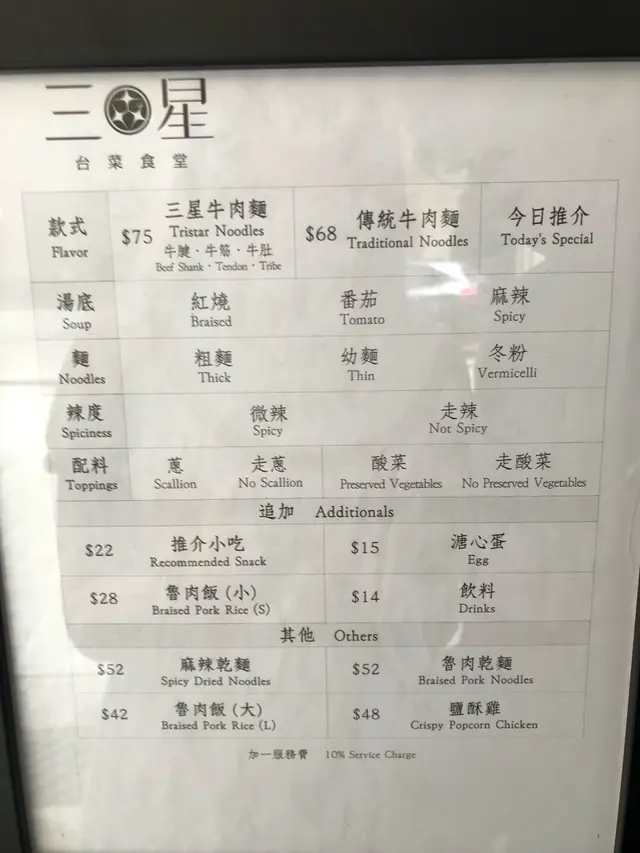 三星
台菜食堂
款式
Flavor
$75
三星牛肉麵
Tristar Noodles
牛腱・牛筋・牛肚
Beef Shank・Tendon・Tribe
$68
傳統牛肉麵
Traditional Noodles
今日推介
Today's Special
湯底
Soup
紅燒
Braised
番茄
Tomato
麻辣
Spicy
麵
Noodles
粗麵
Thick
幼麵
Thin
冬粉
Vermicelli
辣度
Spiciness
微辣
Spicy
走辣
Not Spicy
配料
Toppings
蔥
Scallion
走蔥
No Scallion
酸菜
Preserved Vegetables
走酸菜
No Preserved Vegetables
追加 Additionals
$22
推介小吃
Recommended Snack
$15
溏心蛋
Egg
$28
魯肉飯(小)
Braised Pork Rice (S)
$14
飲料
Drinks
其他 Others
$52
麻辣乾麵
Spicy Dried Noodles
$52
魯肉乾麵
Braised Pork Noodles
$42
魯肉飯(大)
Braised Pork Rice (L)
$48
鹽酥雞
Crispy Popcorn Chicken
加一服務費 10% Service Charge